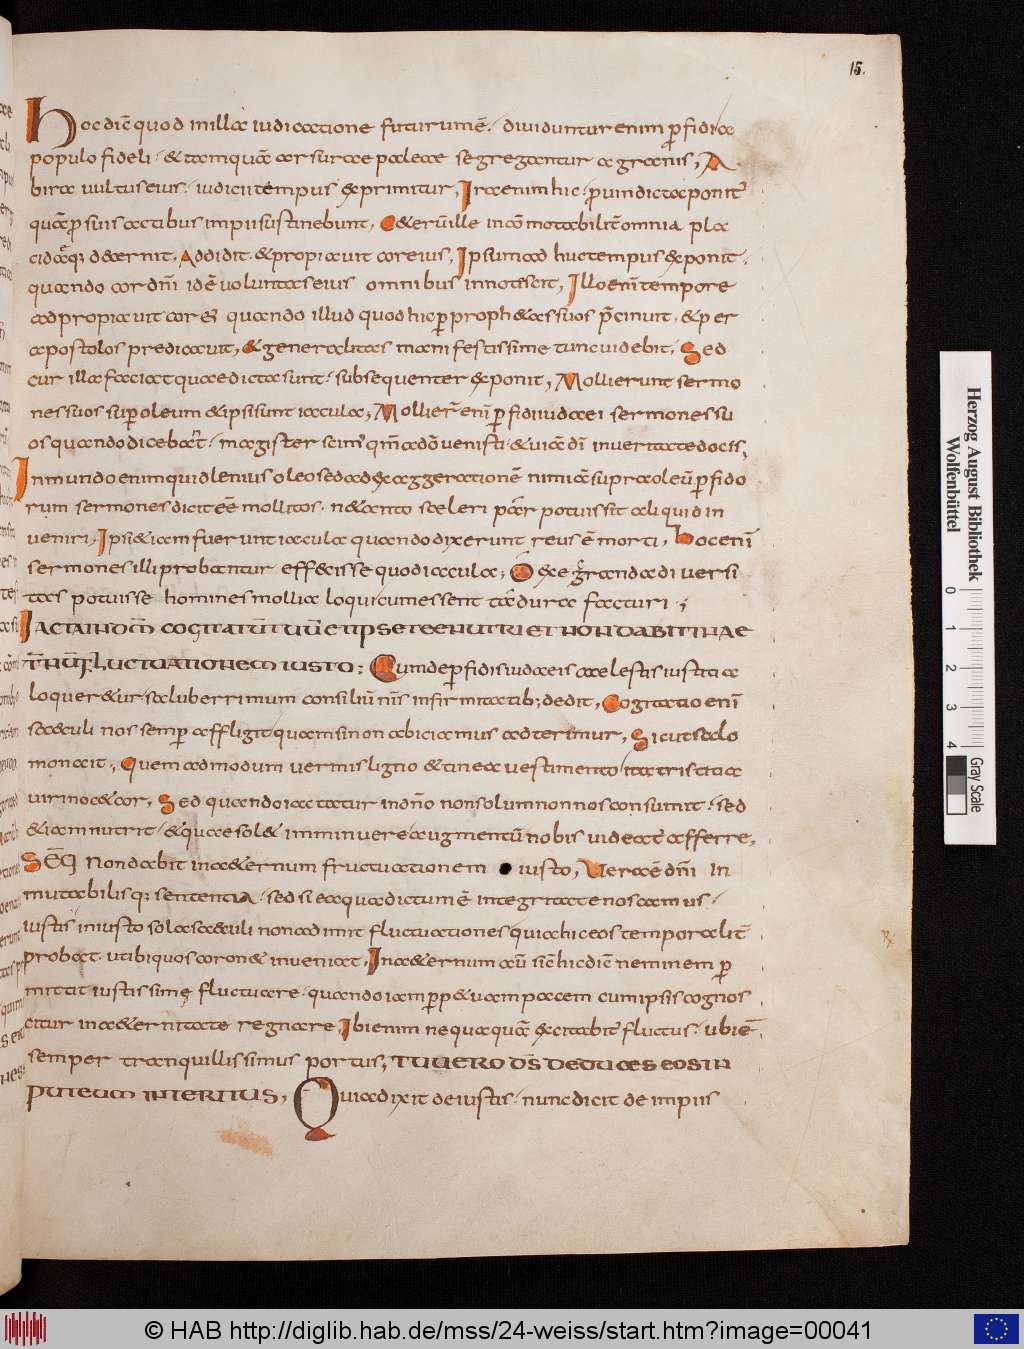 15.
Hoc diē quod in illa iudicatione futurum ē. diuiduntur enim ꝑfidi a
populo fideli. & tamquā arsurae paleae segregantur a granis, Ab
ira uultus eius. iudicii tempus exprimitur, Ira enim hic ꝓ uindicta ponit̄
quā ꝓ suis actibus impii sustinebunt. Ceterū ille incōmotabilit̄ omnia pla
cidaq; decernit. Addidit. & propiauit cor eius, Ipsum ad huc tempus exponit.
quando cor dn̄i idē uoluntas eius omnibus innotescit, Illo enī tempore
adpropiauit cor ei quando illud quod hic ꝑ proph&as suos p̄cinuit. & per
apostolos predicauit, & generalitas manifestissime tunc uidebit, Sed
cur illa faciat quae dicta sunt. subsequenter exponit, Mollierunt sermo
nes suos super oleum & ipsi sunt iacula, Mollier̄ enī ꝑfidi iudaei sermones su
os quando dicebant. magister scim' qm̄ a dō uenisti. & uiā dī in ueritate docis,
In mundo enim quid lenius oleo sed ad exaggerationē nimiā supra oleū ꝑfido
rum sermones dicit eē mollitos. ne tanto sceleri par potuissit aliquid in
ueniri, Ipsi & iam fuerunt iacula quando dixerunt reus ē morti, Hoc enī
sermones illi probantur effecisse quod iacula; O exe grandā diuersi
tas potuisse homines mollia loqui cum essent tā dura facturi;
IACTA IN DOM̄ COGITATŪ TUŪ ET IPSE TE ENUTRIET NON DABIT IN AE
T̄NŪ FLUCTUATIONEM IUSTO; Cum de ꝑfidis iudaeis caelestis iustitia
loquer&ur saluberrimum consiliū nr̄is infirmitatib; dedit, Cogitatio enī
saeculi nos semper affligit quam si non abiciamus adterimur, Sicut salo
mon ait, Quem admodum uermis ligno & tinea uestimento ita tristitia
uiri noc& cor, Sed quando iactatur in dn̄o non solum non nos consumit. sed
& iam nutrit. & quae sol& imminuere augmentū nobis uideat̄ afferre,
SEQ̄ Non dabit in aeternum fructuationem iusto, Vera ē dn̄i in
mutabilisq; sententia. sed si ea quae dictum ē integritate noscamus.
iustis in iusto sola saeculi non adimit fluctuationes quia hic eos temporalit̄
probat. ut ibi quos coron& inueniat, In aeternum aū sic hic diē neminem ꝑ
mittit iustissime fluctuare. quando iam ꝑp&uam pacem cum ipsis cognos
citur in aeternitate regnare, Ibi enim nequaquā excitabit̄ fluctus. ubi ē
semper tranquillissimus portus, TU UERO DS̄ DEDUCES EOS IN
PUTEUM INTERITUS, Quia dixit de iustis. nunc dicit de impiis
Herzog August Bibliothek
Wolfenbüttel
0 1 2 3 4
Gray Scale
© HAB http://diglib.hab.de/mss/24-weiss/start.htm?image=00041